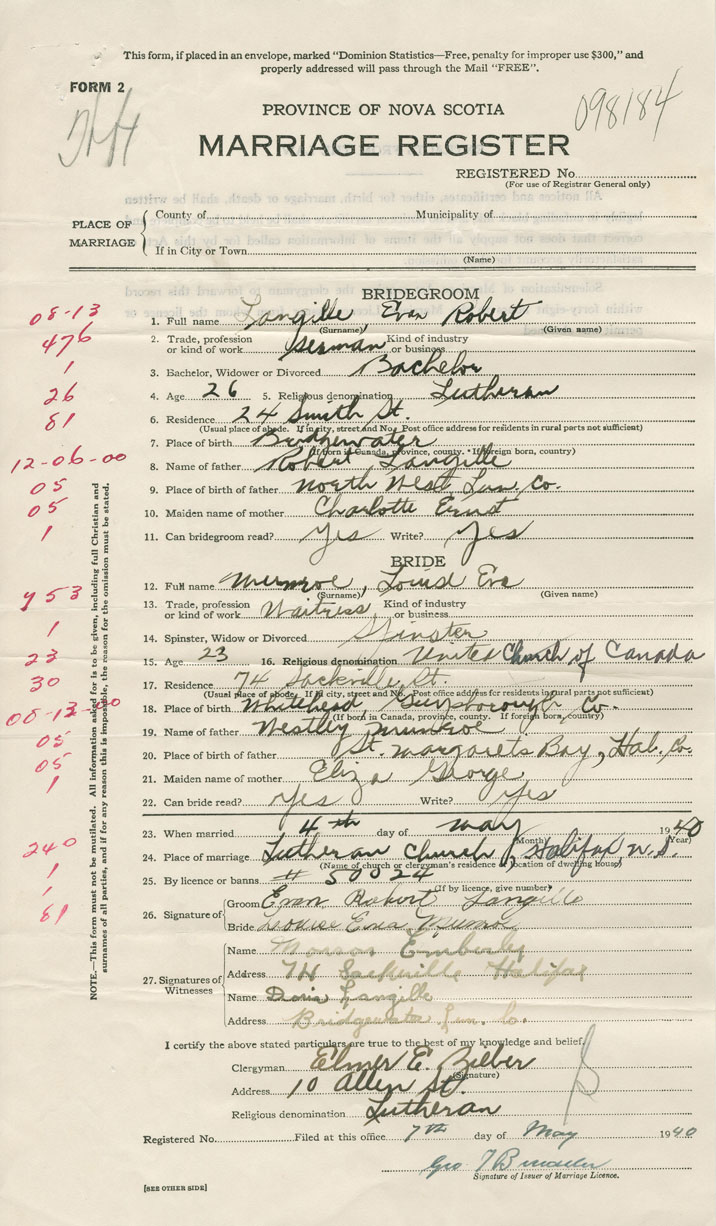 This form, if placed in an envelope, marked "Dominion Statistics—Free, penalty for improper use $300," and
properly addressed will pass through the Mail "FREE".
FORM 2
PROVINCE OF NOVA SCOTIA
098184
MARRIAGE REGISTER
REGISTERED No.
(For use of Registrar General only)
PLACE OF MARRIAGE
County of Municipality of
If in City or Town
(Name)
BRIDEGROOM
08-13
1. Full name Langille, Evan Robert
(Surname) (Given name)
476
2. Trade, profession or kind of work Seaman Kind of industry or business
1
3. Bachelor, Widower or Divorced Bachelor
26
4. Age 26 5. Religious denomination Lutheran
81
6. Residence 24 Smith St.
(Usual place of abode. If in city, street and No. Post office address for residents in rural parts not sufficient)
7. Place of birth Bridgewater
(If born in Canada, province, county. If foreign born, country)
12-06-00
8. Name of father Robert Langille
05
9. Place of birth of father North West Lun. Co.
05
10. Maiden name of mother Charlotte Ernst
1
11. Can bridegroom read? Yes Write? Yes
BRIDE
12. Full name Munroe, Louise Eva
(Surname) (Given name)
953
13. Trade, profession or kind of work Waitress Kind of industry or business
1
14. Spinster, Widow or Divorced Spinster
23
15. Age 23 16. Religious denomination United Church of Canada
30
17. Residence 74 Sackville St.
(Usual place of abode. If in city, street and No. Post office address for residents in rural parts not sufficient)
08-12-00
18. Place of birth Whitehead, Guysborough Co.
(If born in Canada, province, county. If foreign born, country)
05
19. Name of father Westley Munroe
05
20. Place of birth of father St. Margarets Bay, Hal. Co.
1
21. Maiden name of mother Eliza George
22. Can bride read? Yes Write? Yes
23. When married 4th day of May 1940
(Month) (Year)
240
24. Place of marriage Lutheran Church, Halifax, N.S.
(Name of church or clergyman's residence or location of dwelling house)
1
25. By licence or banns # 50024
(If by licence, give number)
1
26. Signature of
Groom Evan Robert Langille
81
Bride Louise Eva Munro
27. Signatures of Witnesses
Name
Address 74 Sackville Halifax
Name Doris Langille
Address Bridgewater Lun. Co.
I certify the above stated particulars are true to the best of my knowledge and belief.
Clergyman Elmer E. Bieber
(Signature)
Address 10 Allen St.
Religious denomination Lutheran
Registered No. Filed at this office 7th day of May 1940
Geo T
Signature of Issuer of Marriage Licence.
[SEE OTHER SIDE]
NOTE.—This form must not be mutilated. All information asked for is to be given, including full Christian and
surnames of all parties, and if for any reason this is impossible, the reason for the omission must be stated.